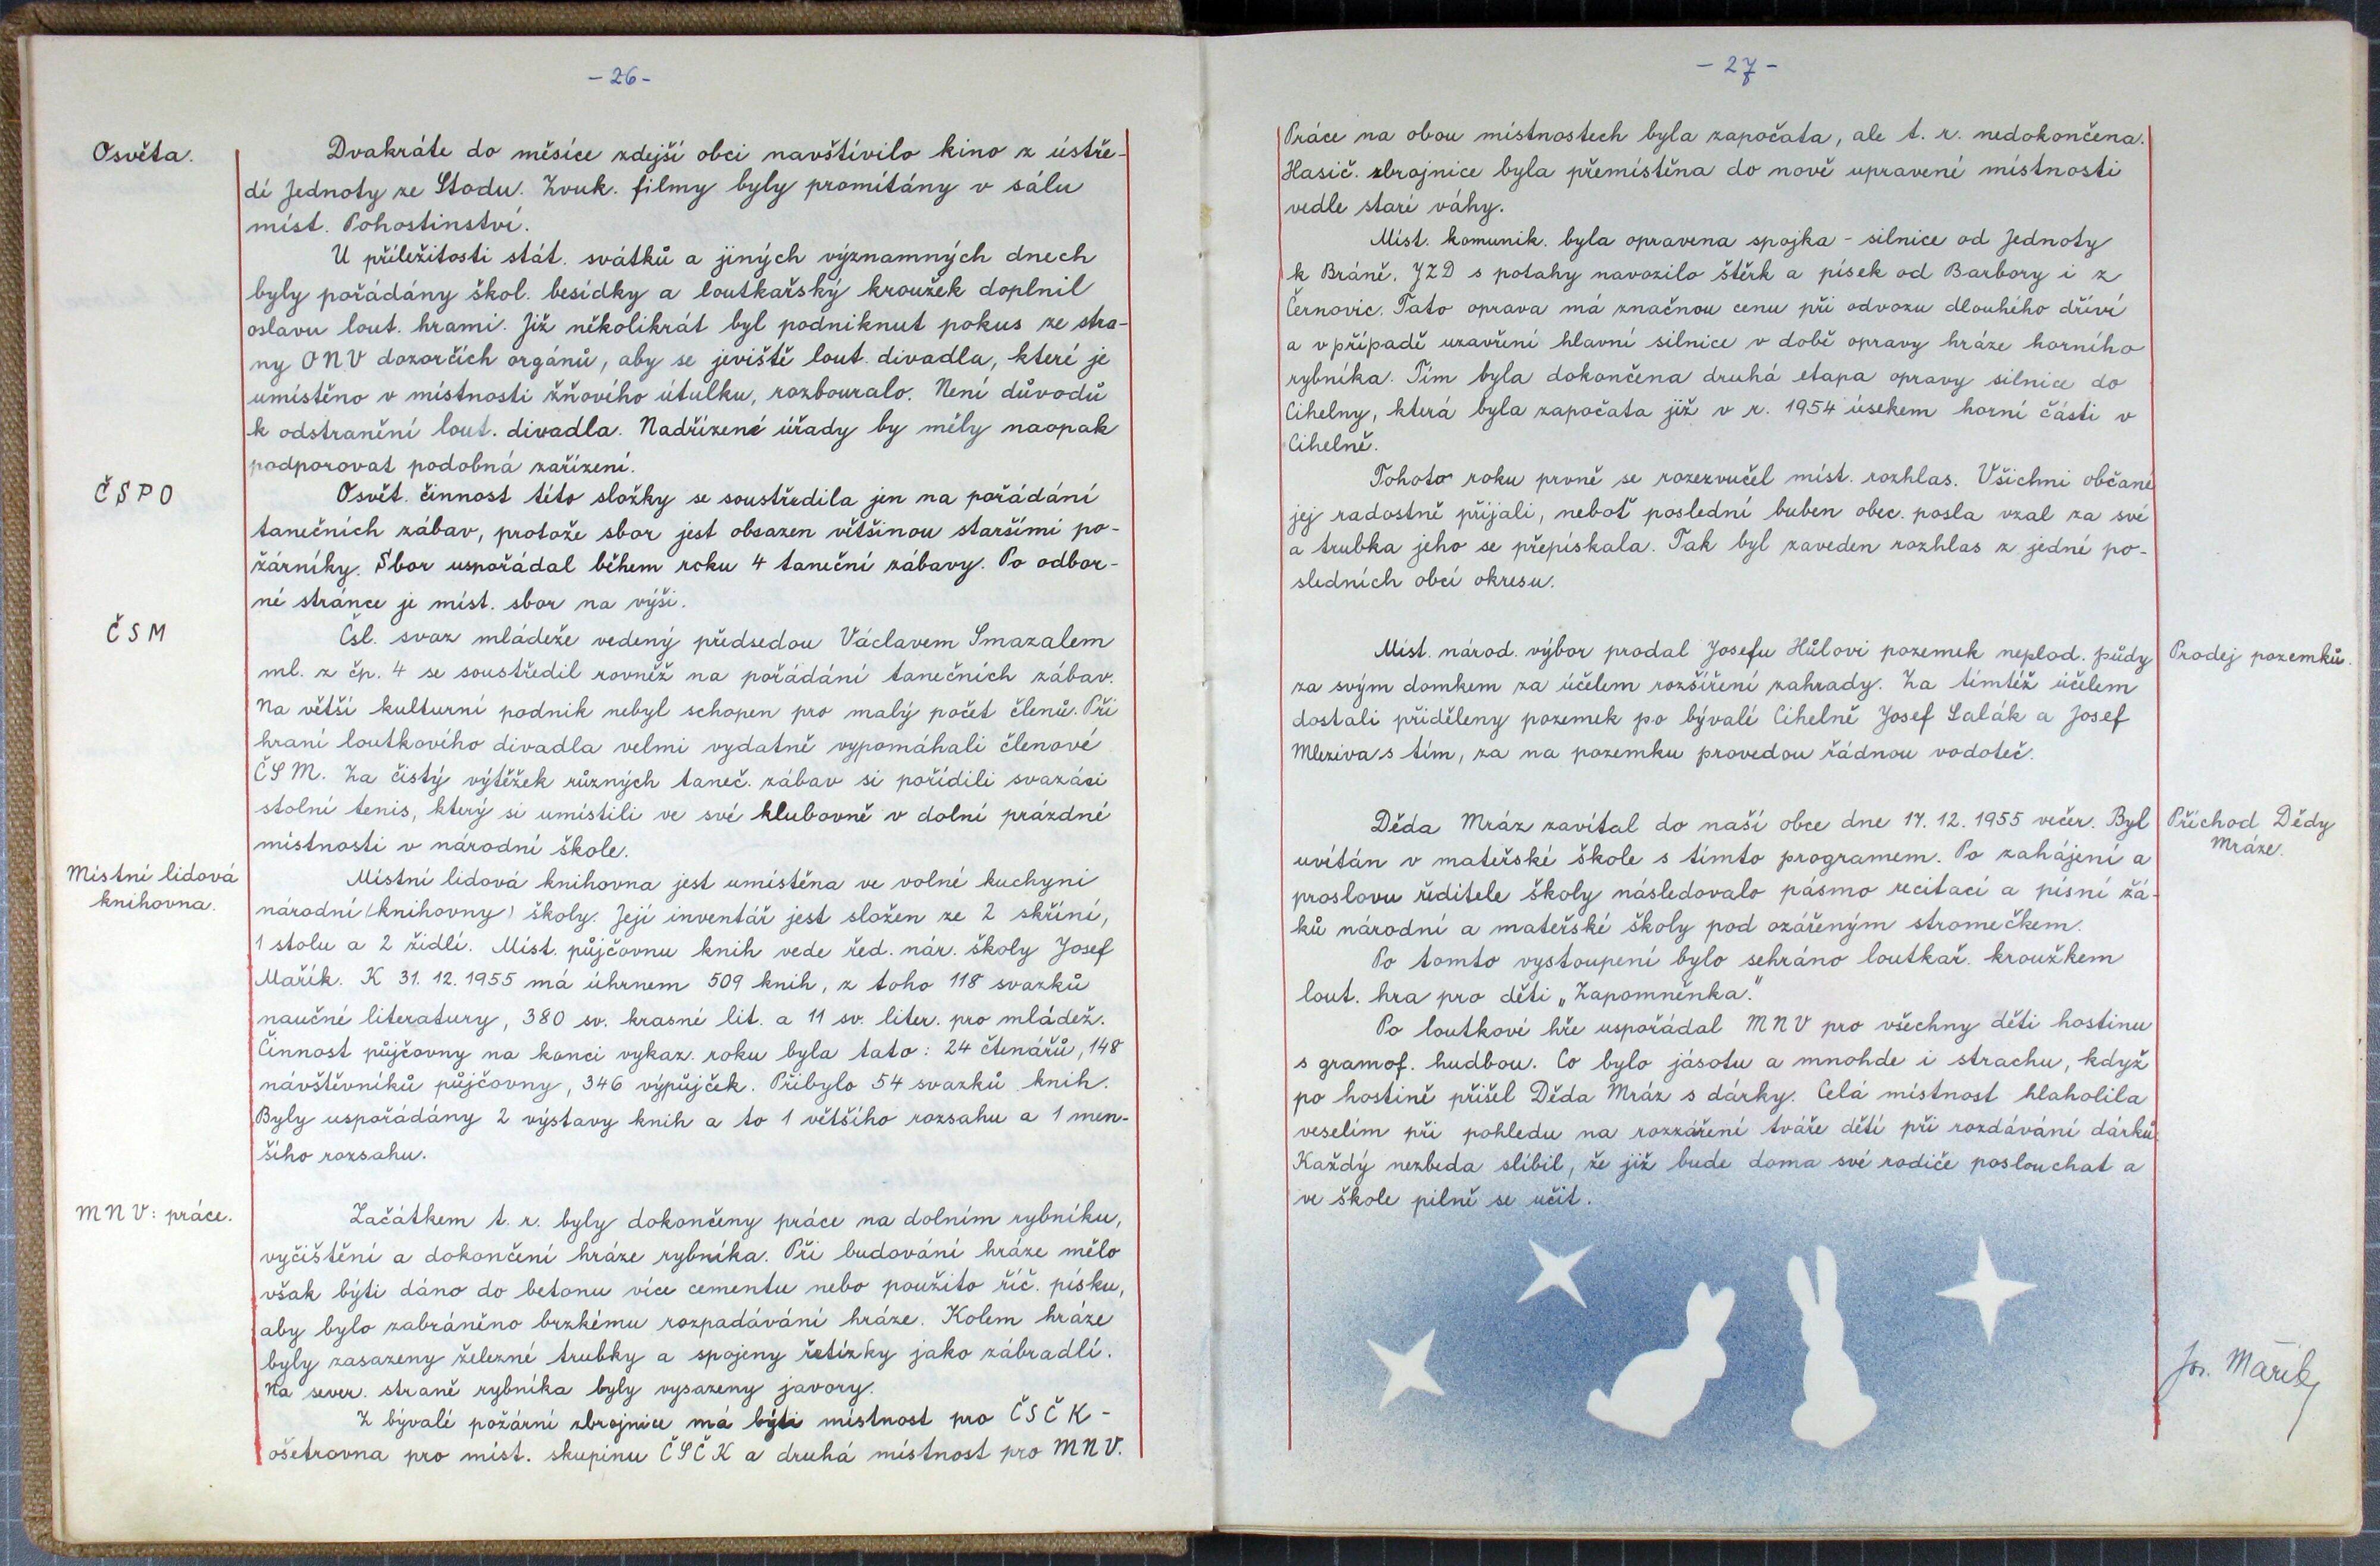 - 26 -
Osvěta.
Dvakráte do měsíce zdejší obci navštívilo kino z ústře-
dí Jednoty ze Stodu. Zvuk. filmy byly promítány v sálu
míst. Pohostinství.
U příležitosti stát. svátků a jiných významných dnech
byly pořádány škol. besídky a loutkařský kroužek doplnil
oslavu lout. hrami. Již několikrát byl podniknut pokus ze stra-
ny ONV dozorčích orgánů, aby se jeviště lout. divadla, které je
umístěno v místnosti žňového útulku, rozbouralo. Není důvodů
k odstranění lout. divadla. Nadřízené úřady by měly naopak
podporovat podobná zařízení.
ČSPO
Osvět. činnost této složky se soustředila jen na pořádání
tanečních zábav, protože sbor jest obsazen většinou staršími po-
žárníky. Sbor uspořádal během roku 4 taneční zábavy. Po odbor-
né stránce je míst. sbor na výši.
ČSM
Čsl. svaz mládeže vedený předsedou Václavem Smazalem
ml. z čp. 4 se soustředil rovněž na pořádání tanečních zábav.
Na větší kulturní podnik nebyl schopen pro malý počet členů. Při
hraní loutkového divadla velmi vydatně vypomáhali členové
ČSM. Za čistý výtěžek různých taneč. zábav si pořídili svazáci
stolní tenis, který si umístili ve své klubovně v dolní prázdné
místnosti v národní škole.
Místní lidová
knihovna.
Místní lidová knihovna jest umístěna ve volné kuchyni
národní (knihovny) školy. Její inventář jest složen ze 2 skříní,
1 stolu a 2 židlí. Míst. půjčovnu knih vede řed. nár. školy Josef
Mařík. K 31. 12. 1955 má úhrnem 509 knih, z toho 118 svazků
naučné literatury, 380 sv. krasné lit. a 11 sv. liter. pro mládež.
Činnost půjčovny na konci vykaz. roku byla tato: 24 čtenářů, 148
návštěvníků půjčovny, 346 výpůjček. Přibylo 54 svazků knih.
Byly uspořádány 2 výstavy knih a to 1 většího rozsahu a 1 men-
šího rozsahu.
MNV: práce.
Začátkem t. r. byly dokončeny práce na dolním rybníku,
vyčištění a dokončení hráze rybníka. Při budování hráze mělo
však býti dáno do betonu více cementu nebo použito říč. písku,
aby bylo zabráněno brzkému rozpadávání hráze. Kolem hráze
byly zasazeny železné trubky a spojeny řetízky jako zábradlí.
Na sever. straně rybníka byly vysazeny javory.
Z bývalé požární zbrojnice má býti místnost pro ČSČK -
ošetrovna pro míst. skupinu ČSČK a druhá místnost pro MNV.
- 27 -
Práce na obou místnostech byla započata, ale t. r. nedokončena.
Hasič. zbrojnice byla přemístěna do nově upravené místnosti
vedle staré váhy.
Míst. komunik. byla opravena spojka - silnice od Jednoty
k Bráně. JZD s potahy navozilo štěrk a písek od Barbory i z
Černovic. Tato oprava má značnou cenu při odvozu dlouhého dříví
a v případě uzavření hlavní silnice v době opravy hráze horního
rybníka. Tím byla dokončena druhá etapa opravy silnice do
Cihelny, která byla započata již v r. 1954 úsekem horní části v
Cihelně.
Tohoto roku prvně se rozezvučel míst. rozhlas. Všichni občané
jej radostně přijali, neboť poslední buben obec. posla vzal za své
a trubka jeho se přepískala. Tak byl zaveden rozhlas z jedné po-
sledních obcí okresu.
Míst. národ. výbor prodal Josefu Hůlovi pozemek neplod. půdy
Prodej pozemků.
za svým domkem za účelem rozšíření zahrady. Za tímtéž účelem
dostali přiděleny pozemek po bývalé Cihelně Josef Salák a Josef
Mleziva s tím, za na pozemku provedou řádnou vodoteč.
Děda Mráz zavítal do naší obce dne 17. 12. 1955 večer. Byl
Příchod Dědy
Mráze.
uvítán v mateřské škole s tímto programem. Po zahájení a
proslovu ředitele školy následovalo pásmo recitací a písní žá-
ků národní a mateřské školy pod ozářeným stromečkem.
Po tomto vystoupení bylo sehráno loutkař. kroužkem
lout. hra pro děti „Zapomněnka."
Po loutkové hře uspořádal MNV pro všechny děti hostinu
s gramof. hudbou. Co bylo jásotu a mnohde i strachu, když
po hostině přišel Děda Mráz s dárky. Celá místnost hlaholila
veselím při pohledu na rozzáření tváře dětí při rozdávání dárků.
Každý nezbeda slíbil, že již bude doma své rodiče poslouchat a
ve škole pilně se učit.
Jos. Mařík